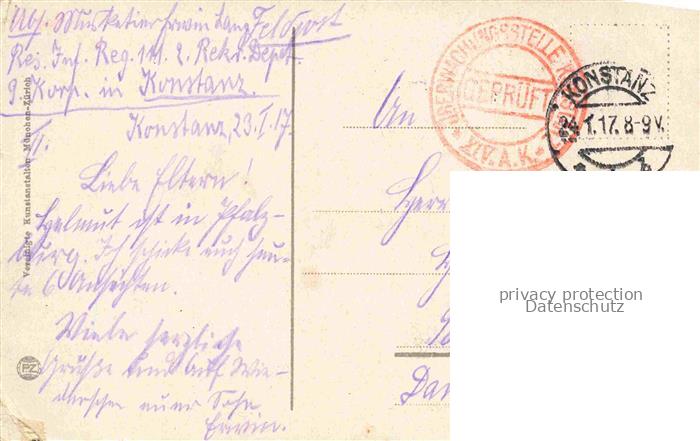 Abs. Musketier Erwin Lang Feldpost
Res. Inf. Reg. 111. 2. Rekr. Depot.
9. Korp. in Konstanz.
Konstanz, 23. I. 17.
Liebe Eltern!
Helmut ist in Pfalz-
burg. Ich schicke euch heu-
te 6 Ansichten.
Viele herzliche
Grüße und auf Wie-
dersehen euer Sohn
Erwin.
Vereinigte Kunstanstalten München-Zürich
PZ
ÜBERWACHUNGSSTELLE
GEPRÜFT
XIV. A. K.
KONSTANZ
24.1.17. 8-9V.
An
privacy protection
Datenschutz